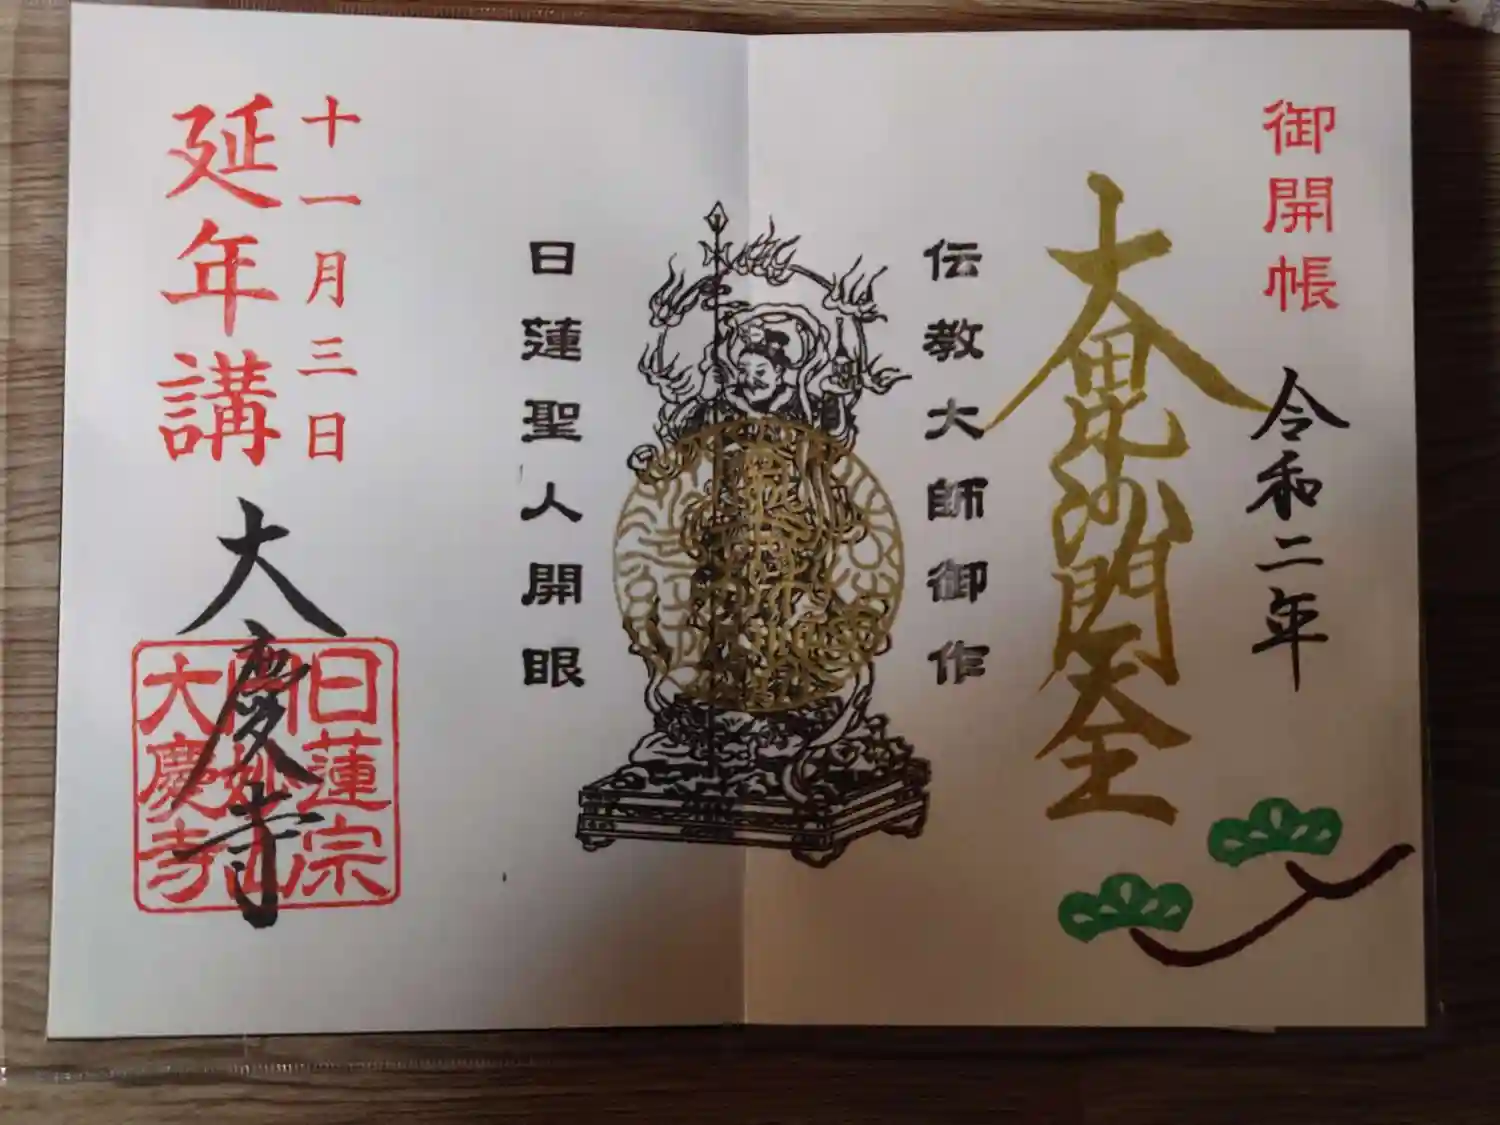 御開帳
令和二年
大毘沙門天王
伝教大師御作
日蓮聖人開眼
十一月三日
延年講
大慶寺
日蓮宗
円妙山
大慶寺